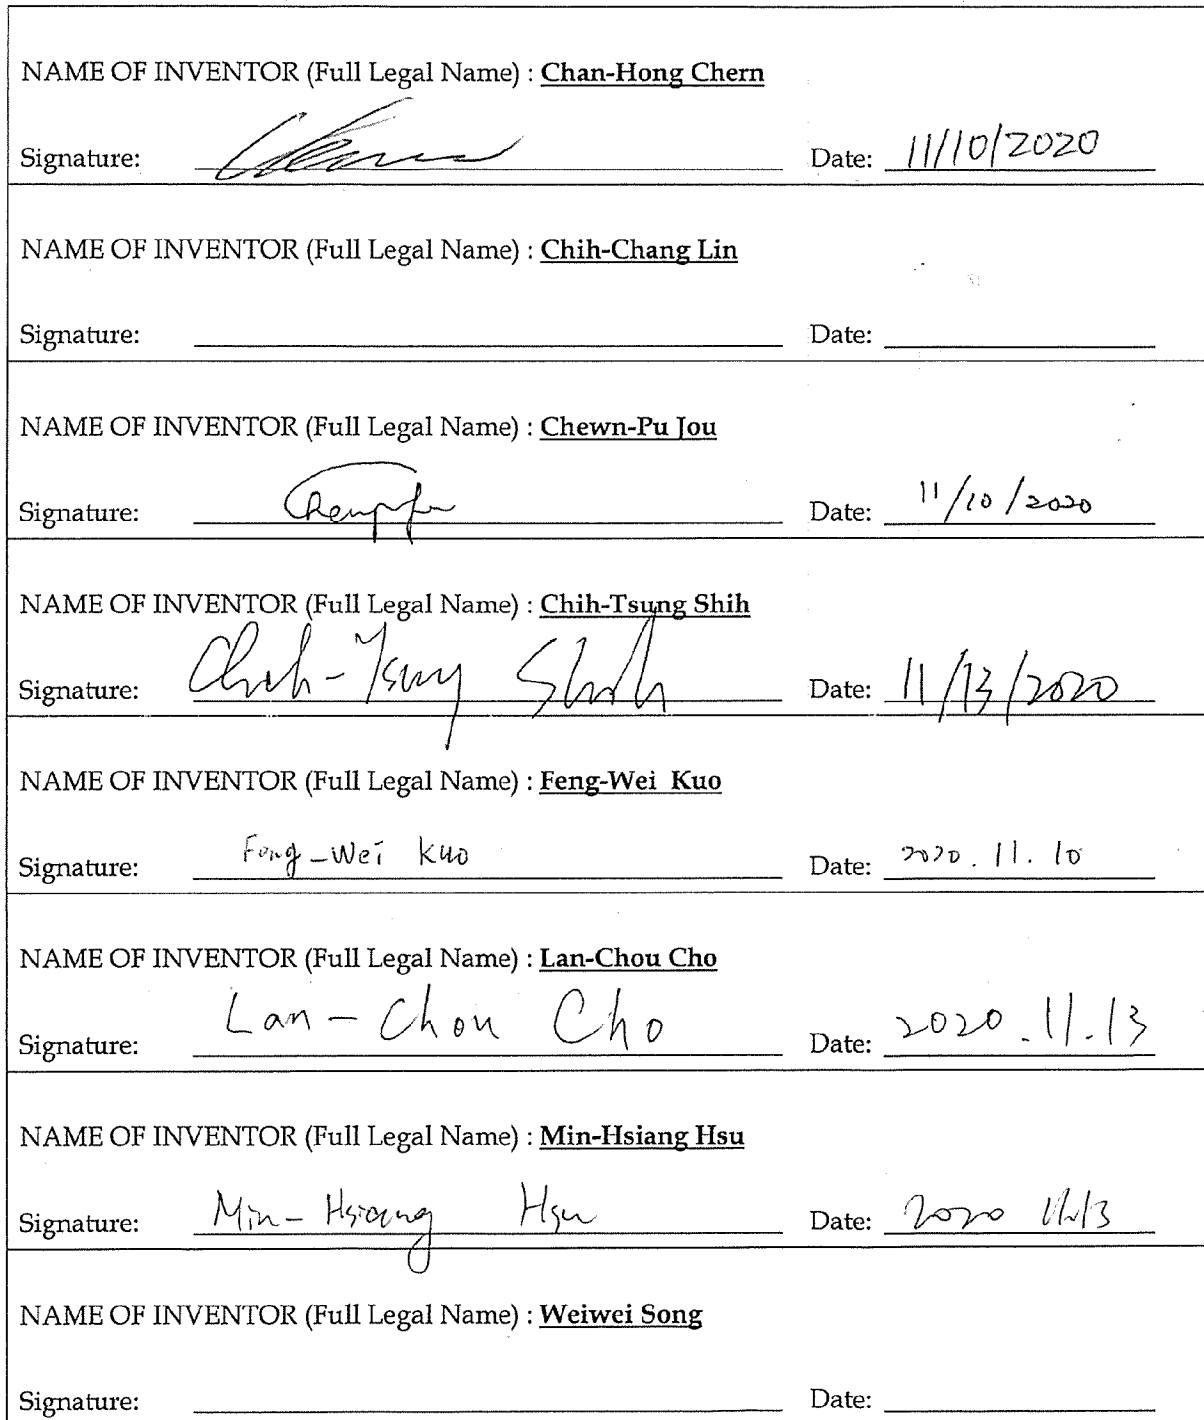 NAME OF INVENTOR (Full Legal Name) : Chan-Hong Chern
Signature: Date: 11/10/2020
NAME OF INVENTOR (Full Legal Name) : Chih-Chang Lin
Signature: Date:
NAME OF INVENTOR (Full Legal Name) : Chewn-Pu Jou
Signature: Date: 11/10/2020
NAME OF INVENTOR (Full Legal Name) : Chih-Tsung Shih
Signature: Chih-Tsung Shih Date: 11/13/2020
NAME OF INVENTOR (Full Legal Name) : Feng-Wei Kuo
Signature: Feng-Wei Kuo Date: 2020.11.10
NAME OF INVENTOR (Full Legal Name) : Lan-Chou Cho
Signature: Lan-Chou Cho Date: 2020.11.13
NAME OF INVENTOR (Full Legal Name) : Min-Hsiang Hsu
Signature: Min-Hsiang Hsu Date: 2020
NAME OF INVENTOR (Full Legal Name) : Weiwei Song
Signature: Date: